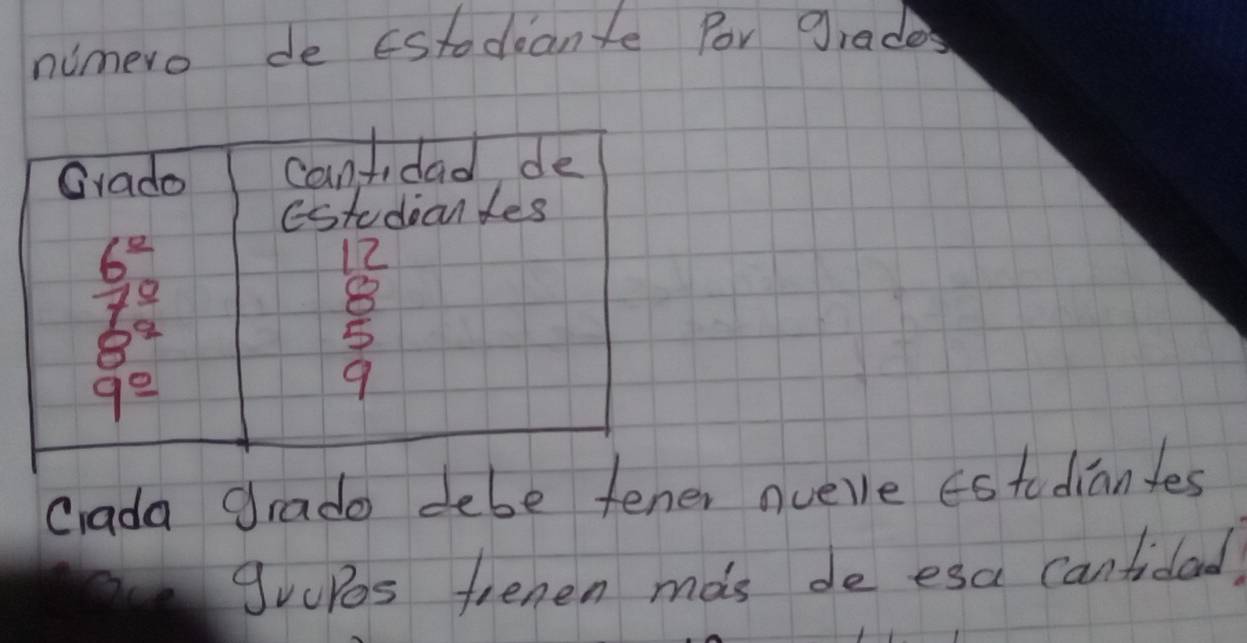 número de Estodiante Por Grados
Grado cantidad de
Estudiantes
6º 12
7º 8
8º 5
9º 9
Crada grado debe tener nueve Estudiántes
grupos tienen más de esa cantidad?